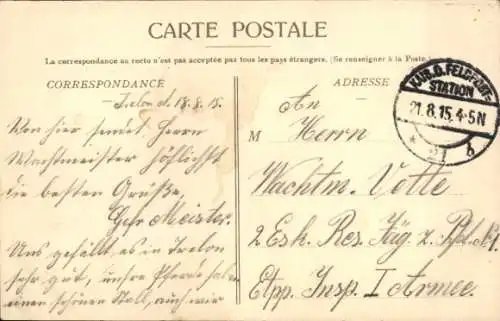 CARTE POSTALE
La correspondance au recto n'est pas acceptée par tous les pays étrangers. (Se renseigner à la Poste.)
CORRESPONDANCE
ADRESSE
STATION
21.8.15.4-5N
b
Trelon d. 18.8.15.
Von hier sendet Herrn
Wachtmeister höflichst
die besten Grüße,
Gefr Meister.
Uns gefällt es in Trelon
sehr gut, unsre Pferde haben
einen schönen Stall, auch wir
An
M Herrn
Wachtm. Votte
2 Esk. Res. Jäg. z. Pfd. N1.
Etpp. Insp. I Armee.